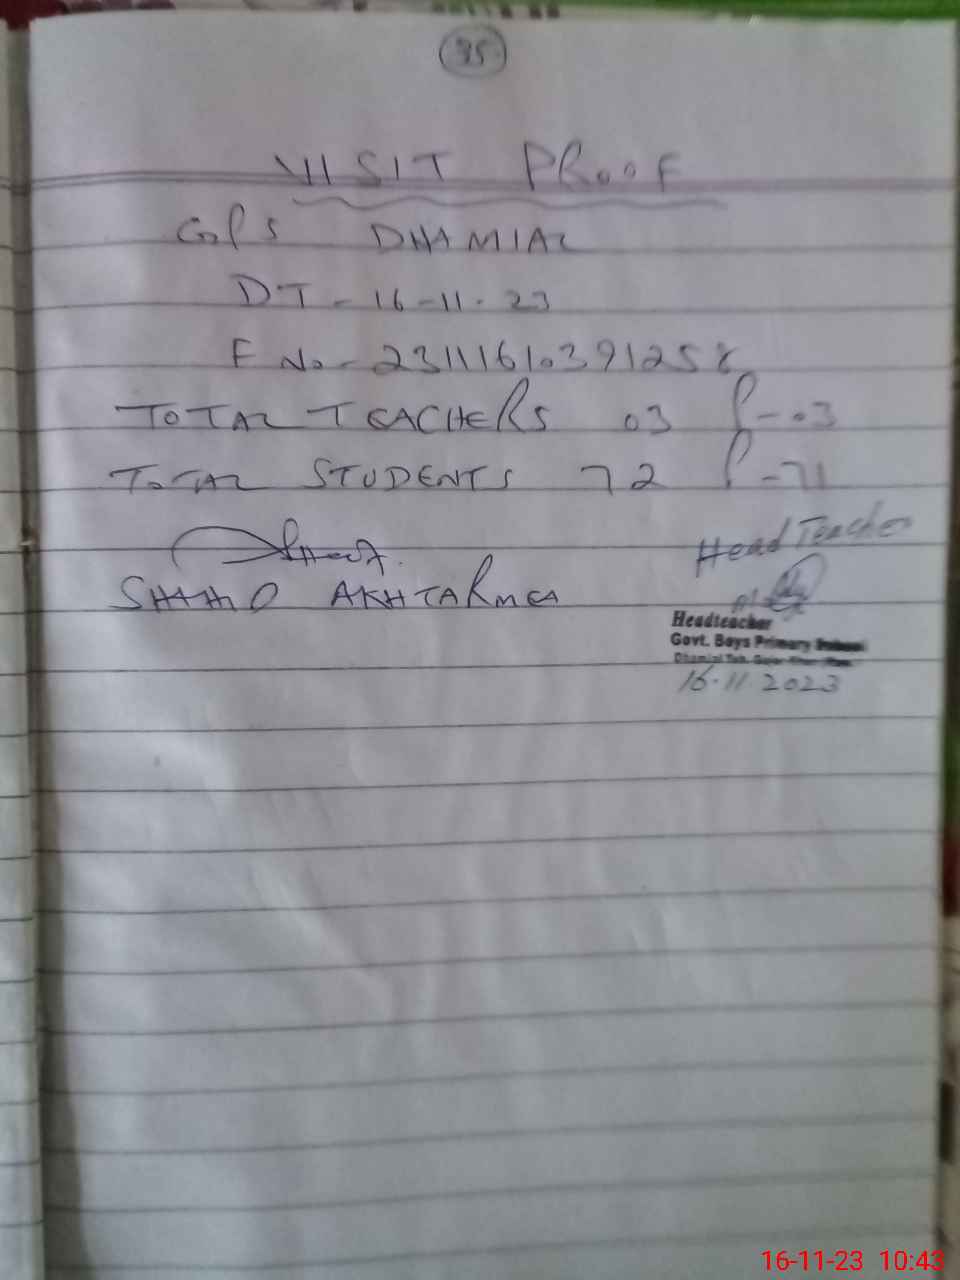 95
VISIT PROOF
GPS DHAMIAL
DT - 16-11-23
F No - 23111610391258
TOTAL TEACHERS 03 P-03
TOTAL STUDENTS 72 P-71
SHAHID AKHTAR MEA
Head Teacher
Headteacher
Govt. Boys Primary School
Dhamial Teh. Gujar Khan
16.11.2023
16-11-23 10:43